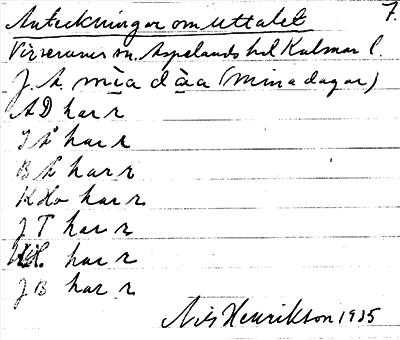 Anteckningar om uttalet 7.
Virserums sn. Aspelands hd Kalmar l.
J. A. mìa dàa (mina dagar)
AD har r
JÅ har r
BÅ har r
KHo har r
JT har r
har r
JB har r
Nils Henrikson 1935